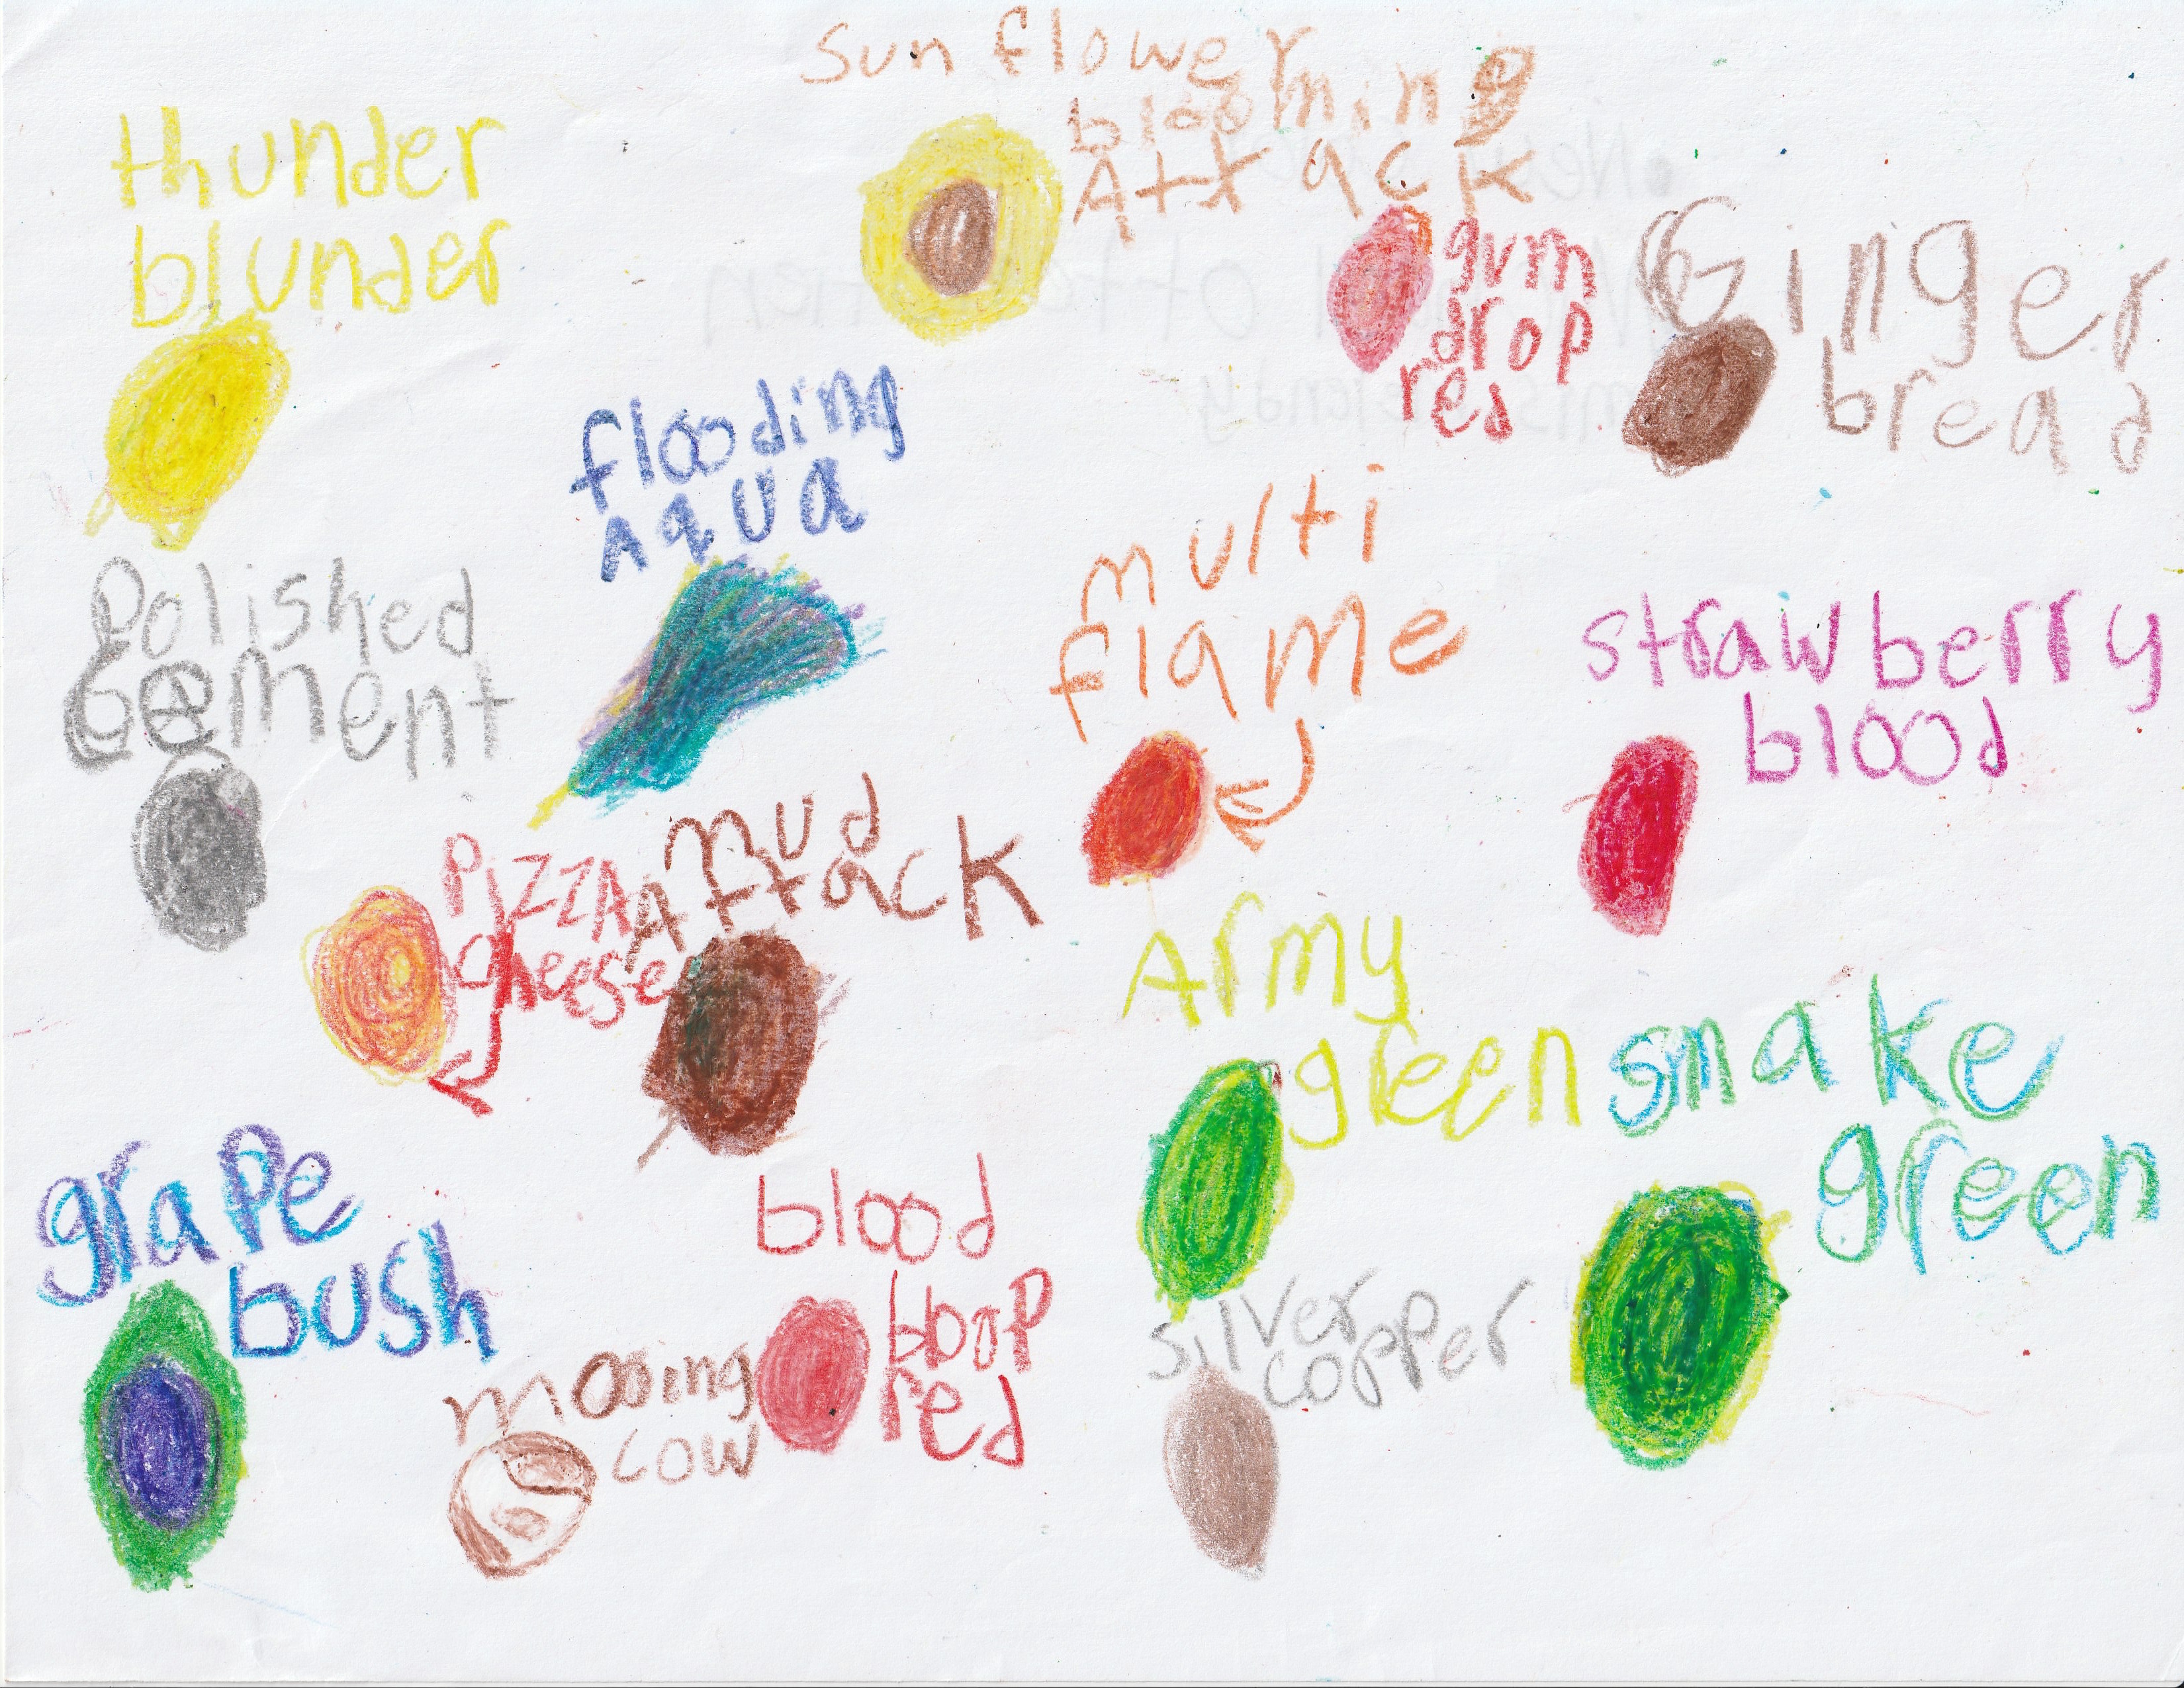 thunder
blunder
Sun flower
blooming
Attack
gum
drop
red
Ginger
bread
flooding
Aqua
Polished
Cement
multi
flame
strawberry
blood
Pizza
cheese
mud
Attack
Army
green
snake
green
grape
bush
mooing
cow
blood
bloop
red
silver
copper